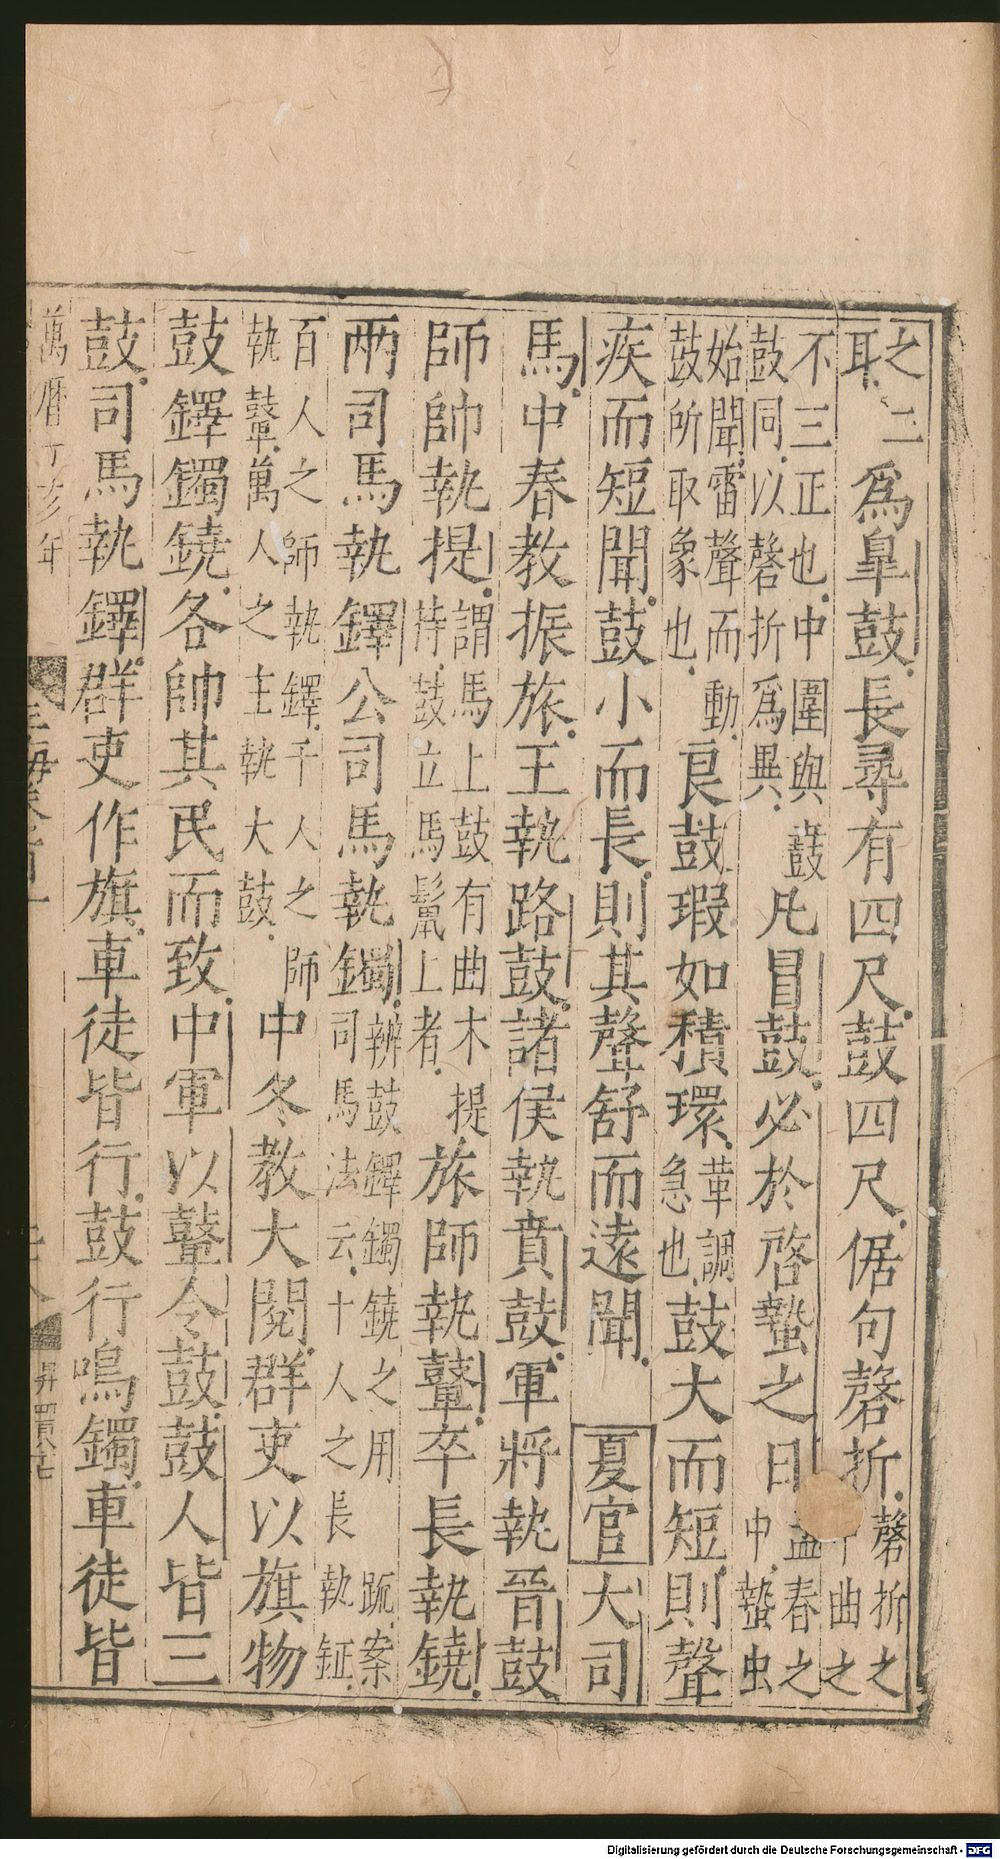 之二耴爲臯鼓長尋有四尺鼓四尺倨句磬折磬折之中曲之
不三正也中圍與鼖鼓同以磬折爲異凡冒鼓必於啓蟄之日孟春之中蟄虫
始聞雷聲而動鼓所取象也良鼓瑕如積環革調急也鼓大而短則聲
疾而短聞鼓小而長則其聲舒而遠聞夏官大司
馬中春教振旅王執路鼓諸侯執賁鼓軍將執晉鼓
師帥執提謂馬上鼓有曲木提持鼓立馬髦上者旅師執鼙卒長執鐃
兩司馬執鐸公司馬執鐲辨鼓鐸鐲鐃之用䟽案司馬法云十人之長執鉦
百人之師執鐸千人之師執鼙萬人之主執大鼓中冬教大閱群吏以旗物
鼓鐸鐲鐃各帥其民而致中軍以鼙令鼓鼓人皆三
鼓司馬執鐸群吏作旗車徒皆行鼓行鳴鐲車徒皆
萬曆丁亥年
Digitalisierung gefördert durch die Deutsche Forschungsgemeinschaft - DFG